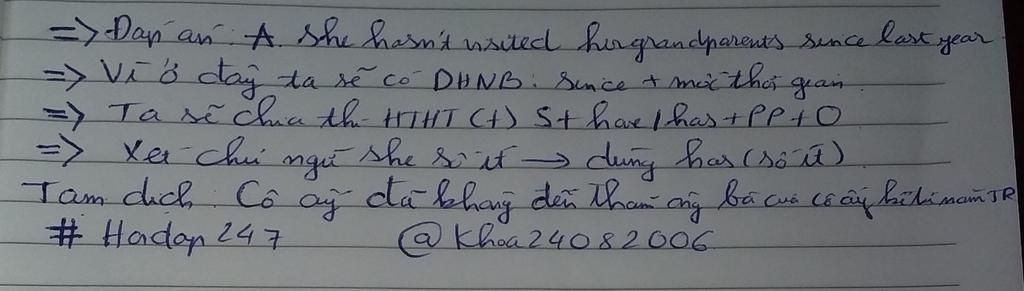 => Đáp án: A. She hasn't visited her grandparents since last year
=> Vì ở đây ta sẽ có DHNB: Since + mốc thời gian.
=> Ta sẽ chia thì HTHT (+) S + have / has + PP + O
=> Xét chủ ngữ she số ít → dùng has (số ít)
Tạm dịch: Cô ấy đã không đến thăm ông bà của cô ấy kể từ năm
# Hoidap247 @Khoa24082006